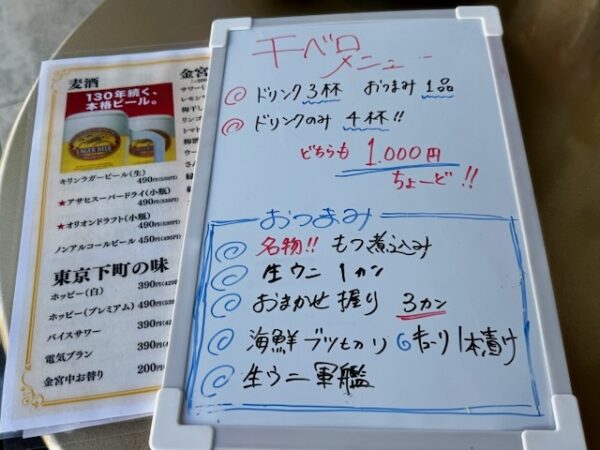 麦酒
130年続く、
本格ビール。
LAGER BEER
キリンラガービール(生)
490円(539円)
★アサヒスーパードライ(小瓶)
490円(539円)
★オリオンドラフト(小瓶)
490円(539円)
ノンアルコールビール 450円(495円)
東京下町の味
ホッピー(白) 390円(429
ホッピー(プレミアム) 490円
バイスサワー 390円
電気ブラン 390円
金宮中お替り 200円
金宮
サワー
レモン
梅干し
リンゴ
トマト
ウー
千ベロ
メニュー
ドリンク3杯 おつまみ1品
ドリンクのみ 4杯!!
どちらも 1.000円
ちょーど!!
おつまみ
名物!! もつ煮込み
生ウニ 1カン
おまかせ握り 3カン
海鮮ブツもり キューリ1本漬け
生ウニ軍艦